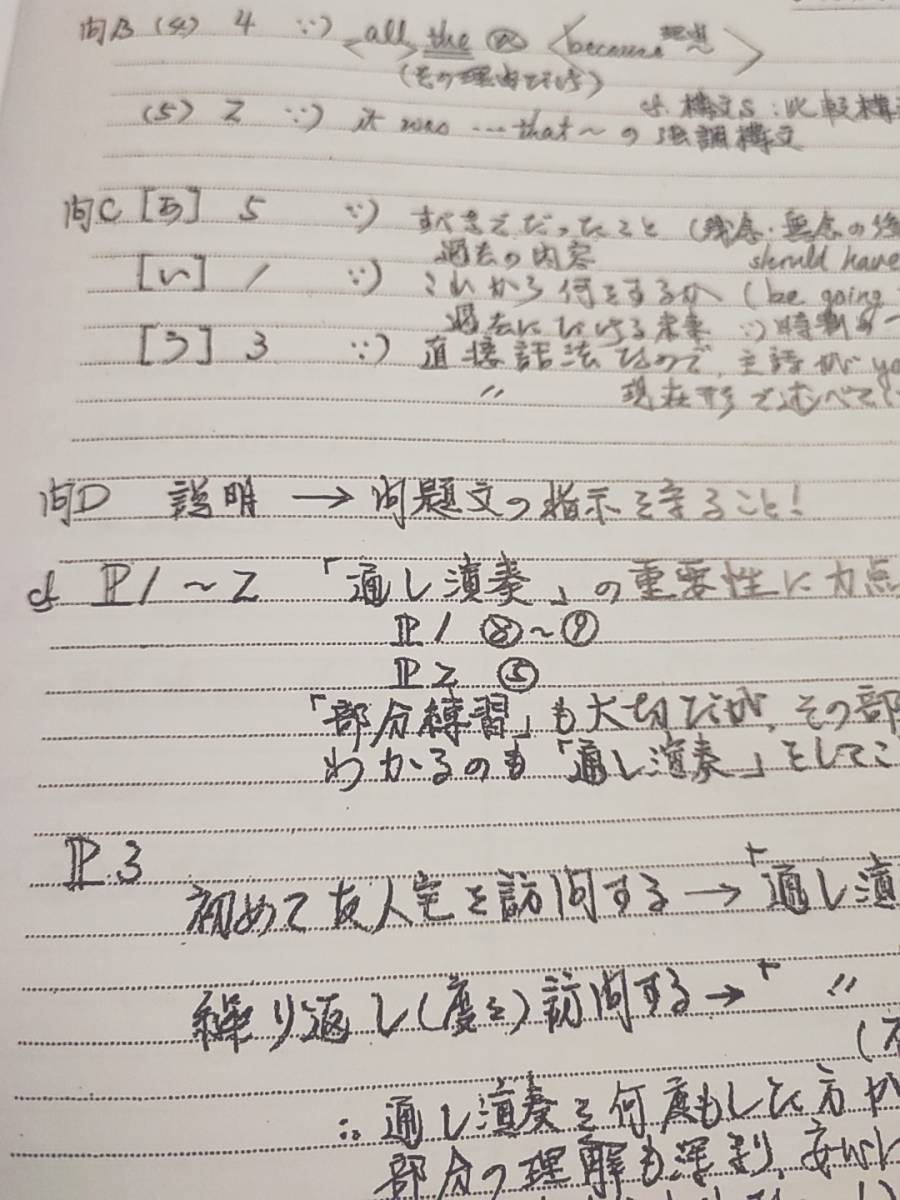 問B (4) 4 ∵) <all> the 比 <because 理由>
(その理由でいっそう)
(5) 2 ∵) it was …that~の強調構文
cf. 構文S:比較構
問C [あ] 5 ∵) すべきだったこと (残念・無念の後
過去の内容 should have
[い] 1 ∵) これから何をするか (be going
過去における未来 ∵) 時制の一
[う] 3 ∵) 直接話法なので,主語がyo
〃 現在形で述べてい
問D 説明 → 問題文の指示を守ること!
cf P1~2 「通し演奏」の重要性に力点
P1 ⑧~⑨
P2 ⑤
「部分練習」も大切だが,その部
わかるのも「通し演奏」をしてこ
P.3
初めて友人宅を訪問する → 通し演
繰り返し(度々)訪問する → 〃
∴ 通し演奏を何度もした方が
部分の理解も深まり,